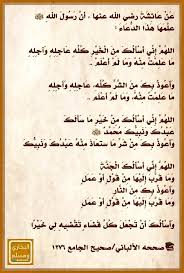 عَنْ عَائشَةَ رضي الله عنها ، أنَّ رَسُولَ اللهِ ﷺ
علَّمها هذا الدُّعاءَ :
اللَّهُمَّ إنِّي أسألُكَ مِنَ الْخَيْرِ كُلِّهِ عَاجِلِهِ وَآجِلِهِ
مَا عَلِمْتُ مِنْهُ وَمَا لَمْ أَعْلَمْ .
وَأَعُوذُ بِكَ مِنَ الشَّرِّ كُلِّهِ، عَاجِلِهِ وَآجِلِهِ
مَا عَلِمْتُ مِنْهُ، وَمَا لَمْ أَعْلَمْ .
اللَّهُمَّ إنِّي أسألُكَ مِنْ خَيْرِ مَا سَألَكَ
عَبْدُكَ وَنَبِيُّكَ مُحَمَّدٌ ﷺ
وَأَعُوذُ بِكَ مِنْ شَرِّ مَا اسْتَعَاذَ مِنْهُ عَبْدُكَ وَنَبِيُّكَ
اللَّهُمَّ إنِّي أسألُكَ الْجَنَّةَ
وَمَا قَرَّبَ إلَيْهَا مِنْ قَوْلٍ أَوْ عَمَلٍ
وَأَعُوذُ بِكَ مِنَ النَّارِ
وَمَا قَرَّبَ إلَيْهَا مِنْ قَوْلٍ أَوْ عَمَلٍ
وَأسألُكَ أَنْ تَجْعَلَ كُلَّ قَضَاءٍ تَقْضِيهِ لِي خَيْرًا
صححه الألباني/صحيح الجامع ١٢٧٦
البخاري
ومسلم